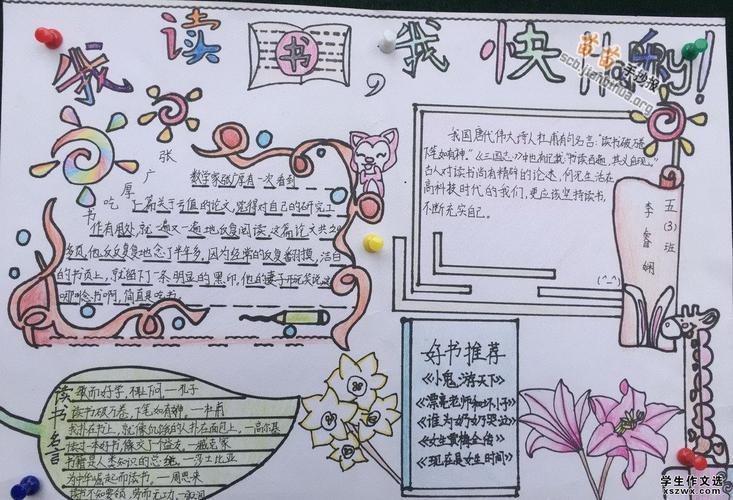 我读书,我快乐!
苗苗手抄报
scb.yjianhua.org
张广厚吃书
数学家张广厚有一次看到
了一篇关于亏值的论文,觉得对自己的研究工
作有用处,就一遍又一遍地反复阅读。这篇论文共20
多页,他反反复复地念了半年多。因为经常的反复翻摸,洁白
的书页上,就留下了一条明显的黑印。他的妻子开玩笑说,这
哪叫念书啊,简直是吃书。
我国唐代伟大诗人杜甫有句名言:"读书破万卷,
下笔如有神。"《三国志》中也有记载"书读百遍,其义自现。"
古人对读书尚有精辟的论述,何况生活在
高科技时代的我们,更应该坚持读书,
不断充实自己。
(^_^)
五(3)班
李睿娴
读书名言
敏而好学,不耻下问。—孔子
读书破万卷,下笔如有神。—杜甫
我扑在书上,就像饥饿的人扑在面包上。—高尔基
读过一本好书,像交了个益友。—臧克家
书籍是人类知识的总统。—莎士比亚
为中华崛起而读书。—周恩来
好书推荐
《小鬼,游天下》
《漂亮老师和坏小子》
《谁为奶奶哭泣》
《女生贾梅全传》
《现在是女生时间》
学生作文选
xszwx.com